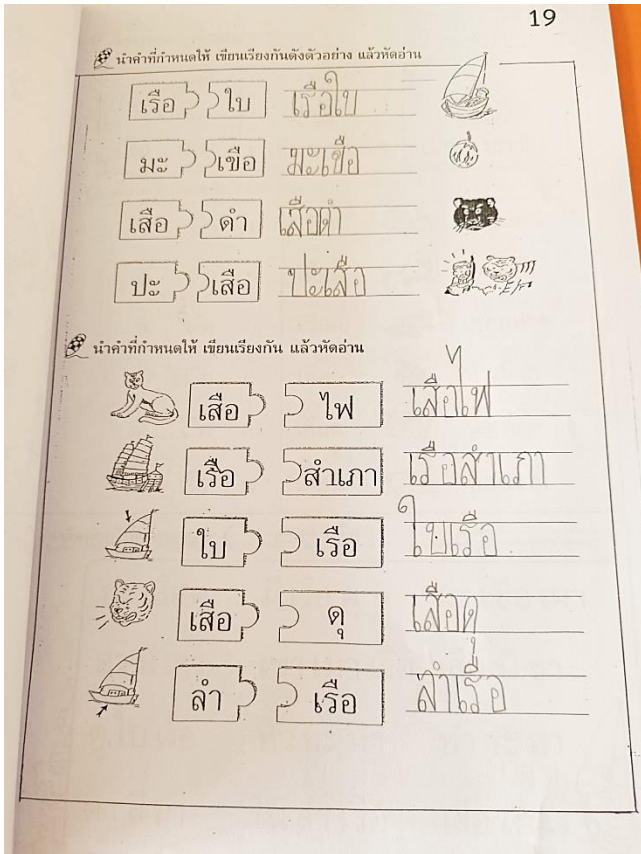 19
นำคำที่กำหนดให้ เขียนเรียงกันดังตัวอย่าง แล้วหัดอ่าน
เรือ ใบ เรือใบ
มะ เขือ มะเขือ
เสือ ดำ เสือดำ
ปะ เสือ ปะเสือ
นำคำที่กำหนดให้ เขียนเรียงกัน แล้วหัดอ่าน
เสือ ไฟ เสือไฟ
เรือ สำเภา เรือสำเภา
ใบ เรือ ใบเรือ
เสือ ดุ เสือดุ
ลำ เรือ ลำเรือ